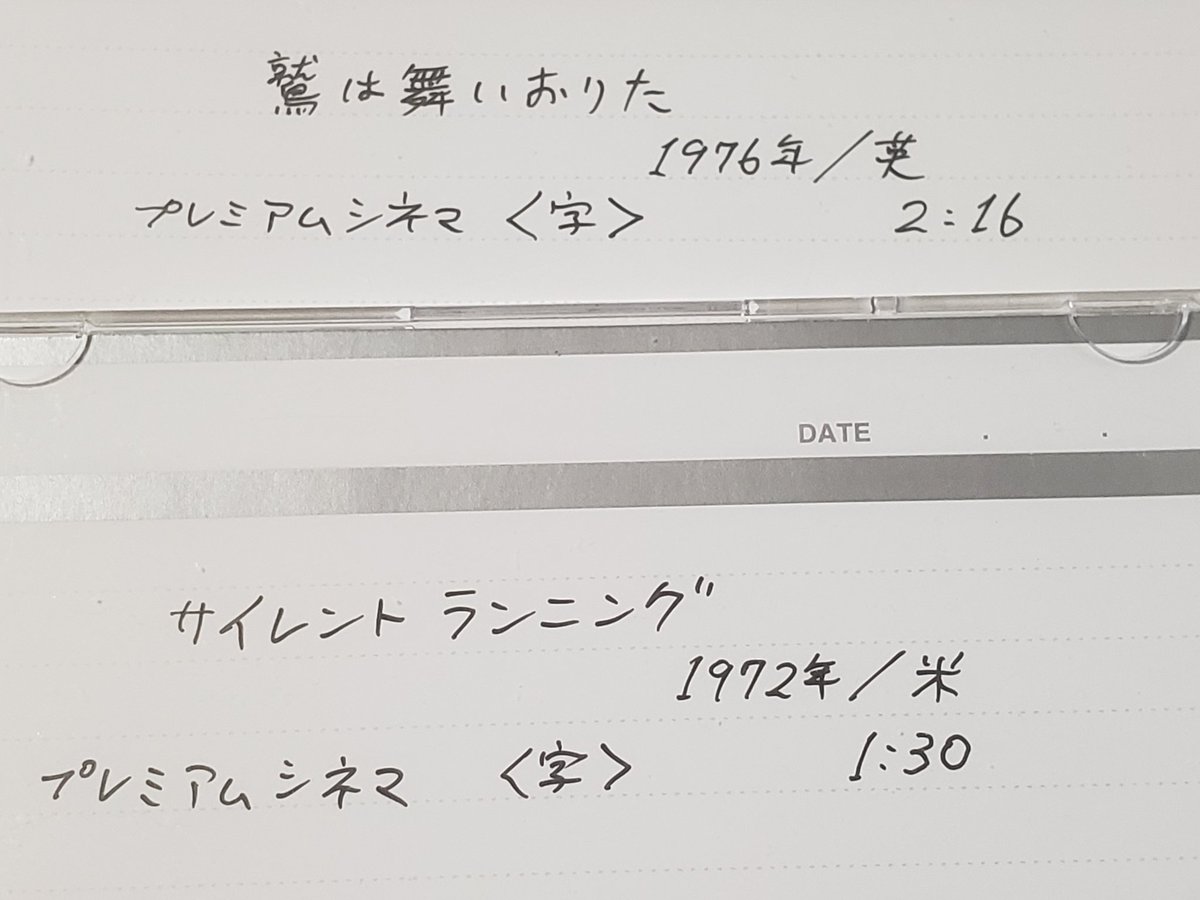 鷲は舞いおりた
1976年/英
プレミアムシネマ 〈字〉 2:16
DATE . .
サイレント ランニング
1972年/米
プレミアムシネマ 〈字〉 1:30